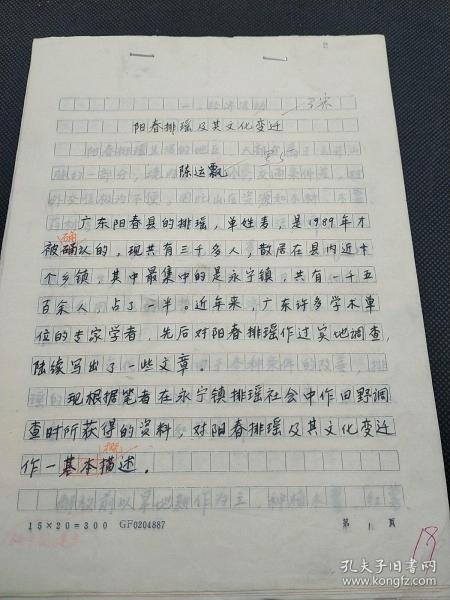 阳春排瑶及其文化变迁
陈运飘
广东阳春县的排瑶,单姓麦,是1989年才
被确认的,现共有三千多人,散居在县内近十
个乡镇,其中最集中的是永宁镇,共有一千五
百余人,占了一半。近年来,广东许多学术单
位的专家学者,先后对阳春排瑶作过实地调查,
陆续写出了一些文章。
现根据笔者在永宁镇排瑶社会中作田野调
查时所获得的资料,对阳春排瑶及其文化变迁
作一基本描述。
15×20=300 GF0204887
第 1 页
18
孔夫子旧书网
www.kongfz.com